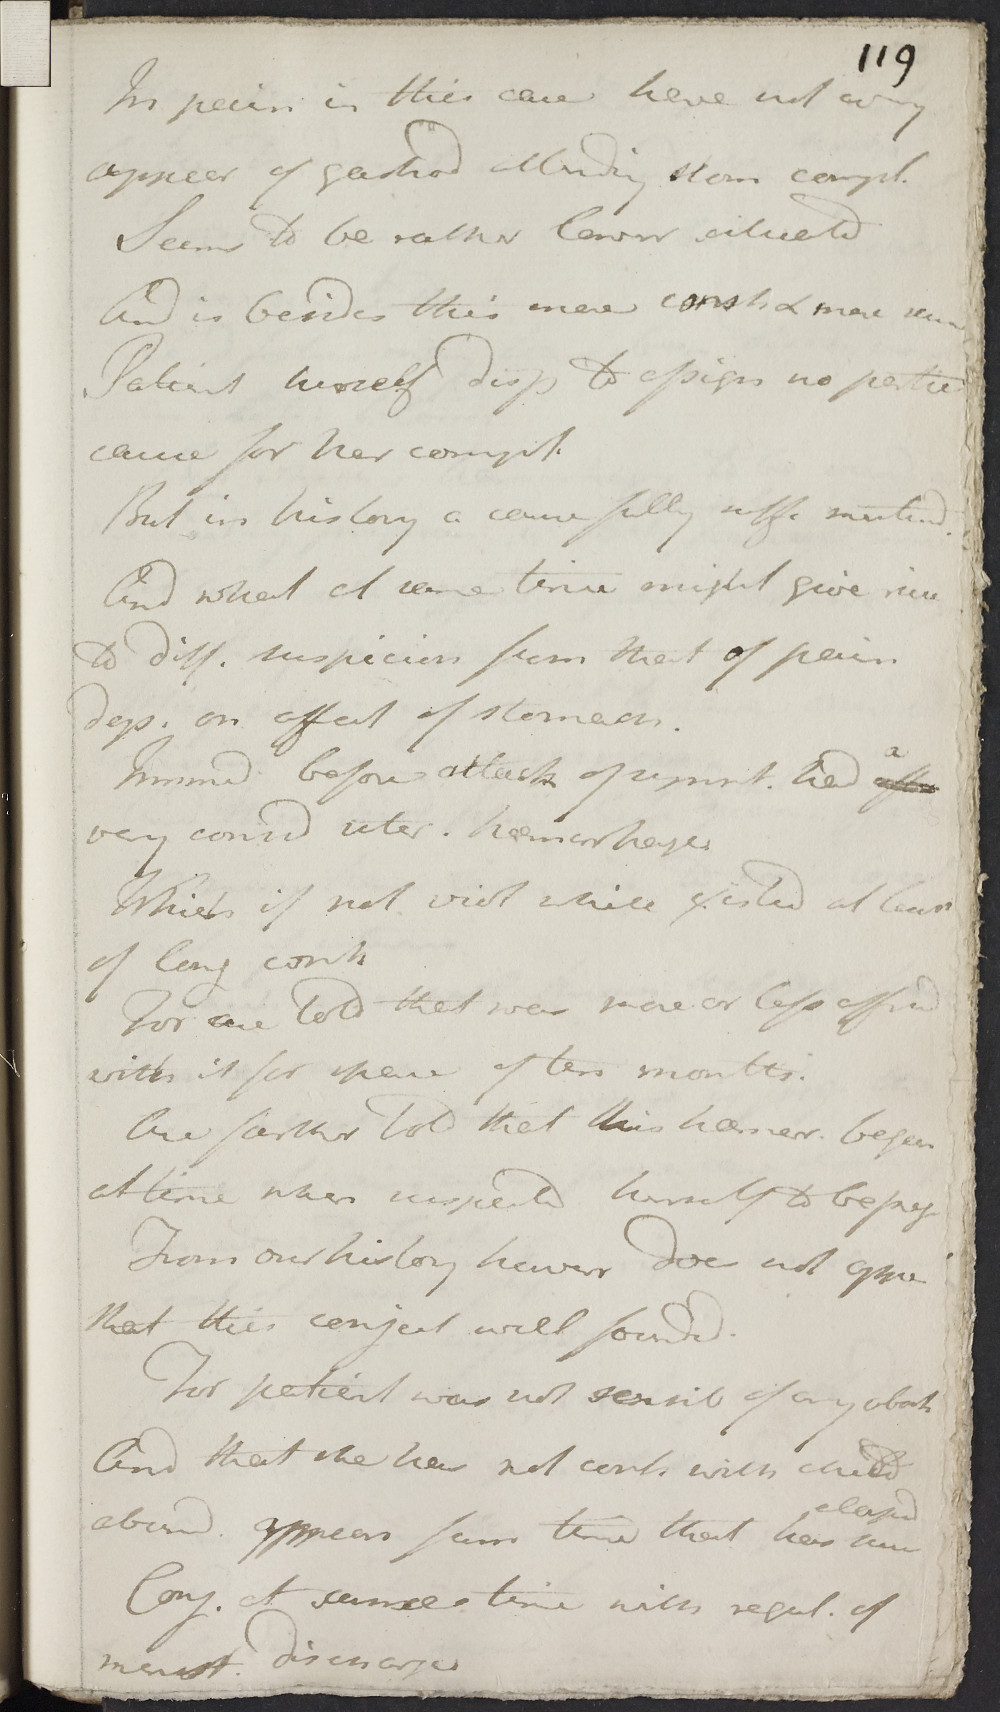 119
In pain in this case have not every
appear of gastrod attending stom compl.
Seems to be rather lower situated
And is besides this more const & more
Patient herself disp to assign no partic
cause for her compt.
But in history a cause fully suffi mentiond.
And what at same time might give rise
to diff. suspicion from that of pain
dep. on affect of stomach.
Immed before attack of sympt. had a
very consid uter. hæmorhage
Which if not viol while existed at least
of long conti
For are told that was more or less affd
with it for space of ten months.
Are farther told that this hæmorr. began
at time when suspected herself to be preg
From our history howevr does not appe
that this conject well found.
For patient was not sensib of any abort
And that she has not conti with child
elapsd
abund. appears from time that has
Conj. at same time with regul. of
menst. discharge